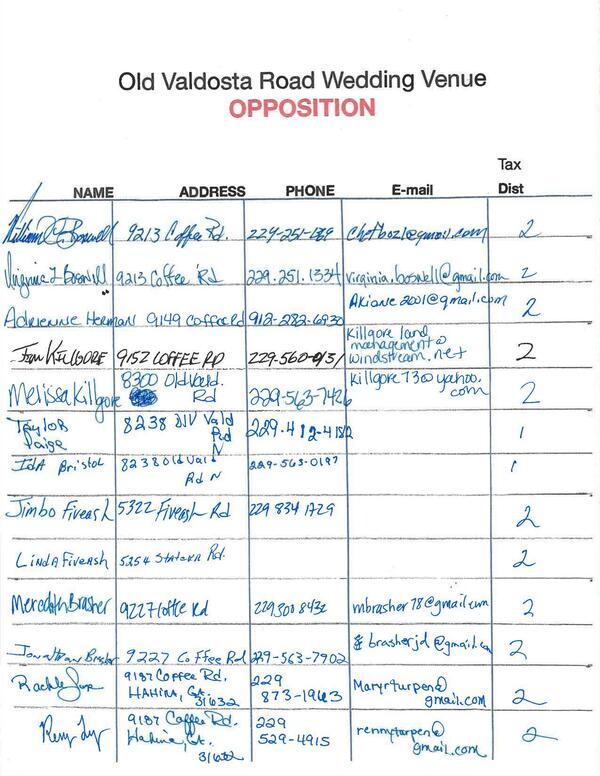 Old Valdosta Road Wedding Venue
OPPOSITION
NAME ADDRESS PHONE E-mail Tax Dist
William Boswell 9213 Coffee Rd. 229-251- chetboz1@gmail.com 2
Virginia L Boswell 9213 Coffee Rd 229.251.1334 virginia.boswell@gmail.com 2
Adrienne Herman 9149 Coffee Rd 912-282-6930 Akiane2001@gmail.com 2
KILLGORE 9152 COFFEE RD 229-560- Killgore land management@ windstream.net 2
Melissa Killgore 8300 Old Vald. Rd 229-563-7426 killgore73@yahoo.com 2
Taylor Paige 8238 Old Vald Rd N 229.412-4 1
Ida Bristol 8238 Old Vald Rd N 229-563-0197 1
Jimbo Fiveash 5322 Fiveash Rd 229 834 1729 2
Linda Fiveash 5254 Rd. 2
Meredith Brasher 9227 Coffee Rd 229 300 8432 mbrasher78@gmail.com 2
Jonathan Brasher 9227 Coffee Rd 229-563-7902 brasherjd@gmail.com 2
9187 Coffee Rd. HAHIRA, GA. 31632 229 873-1963 Maryrturpen@ gmail.com 2
9187 Coffee Rd. Hahira, Ga. 31632 229 529-4915 rennyturpen@ gmail.com 2